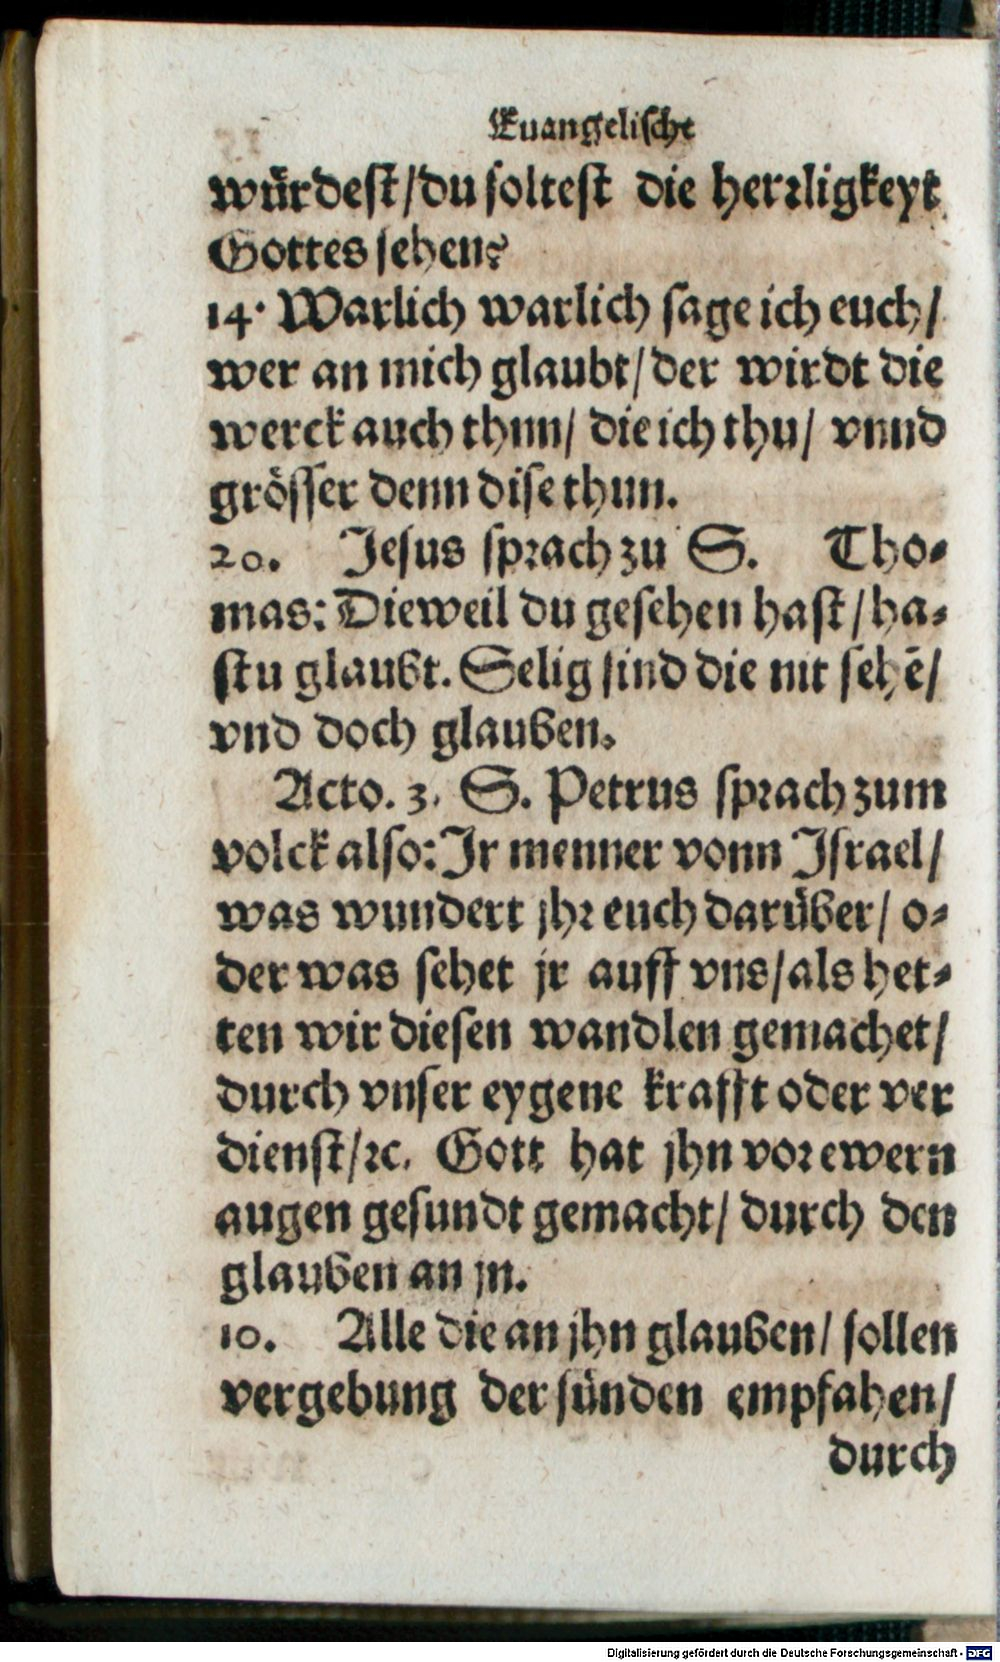 Euangelische
würdest/du soltest die herrligkeyt
Gottes sehen?
14. Warlich warlich sage ich euch/
wer an mich glaubt/der wirdt die
werck auch thun/ die ich thu/ vnnd
grösser denn dise thun.
20. Jesus sprach zu S. Tho-
mas: Dieweil du gesehen hast/ha-
stu glaubt. Selig sind die nit sehē/
vnd doch glauben.
Acto. 3. S. Petrus sprach zum
volck also: Jr menner vonn Jsrael/
was wundert jhr euch darüber/ o-
der was sehet jr auff vns/als het-
ten wir diesen wandlen gemachet/
durch vnser eygene krafft oder ver
dienst/ꝛc. Gott hat jhn vor ewern
augen gesundt gemacht/ durch den
glauben an jn.
10. Alle die an jhn glauben/ sollen
vergebung der sünden empfahen/
durch
Digitalisierung gefördert durch die Deutsche Forschungsgemeinschaft - DFG